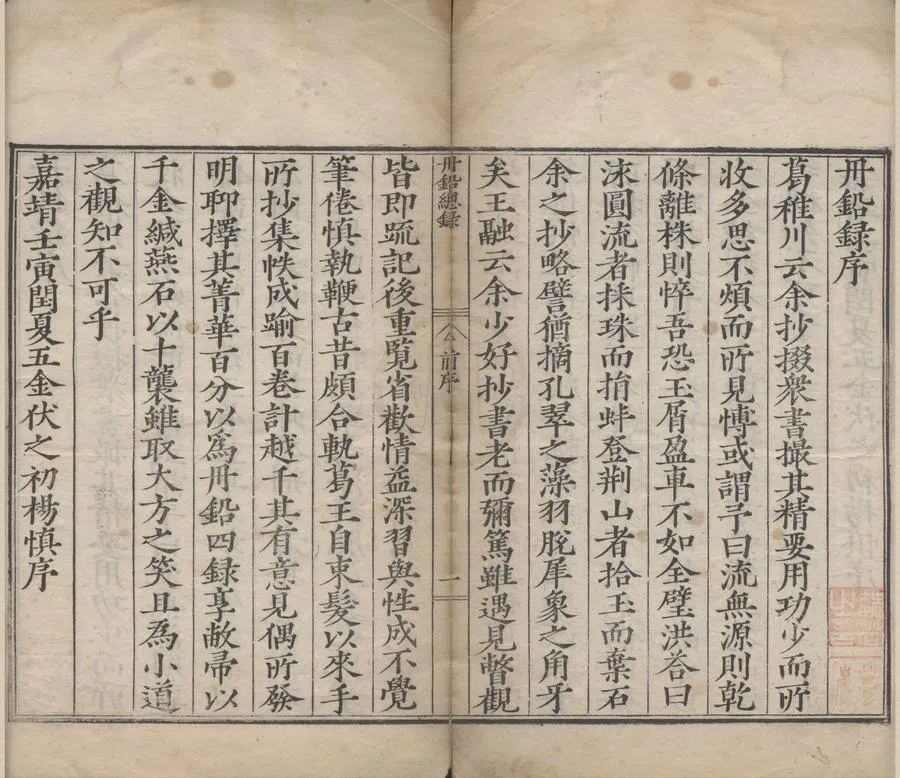 丹鉛録序
葛稚川云余抄掇衆書撮其精要用功少而所
收多思不煩而所見博或謂予曰流無源則乾
條離株則悴吾恐玉屑盈車不如全璧洪荅曰
泳圓流者採珠而捐蚌登荆山者拾玉而棄石
余之抄略譬猶摘孔翠之藻羽脫犀象之角牙
矣王融云余少好抄書老而彌篤雖遇見瞥觀
丹鉛總録
前序
一
皆即疏記後重覧省歡情益深習與性成不覺
筆倦慎執鞭古昔頗合軌葛王自束髮以來手
所抄集帙成踰百卷計越千其有意見偶所發
明聊擇其菁華百分以爲丹鉛四録享敝帚以
千金緘燕石以十襲雖取大方之笑且爲小道
之觀知不可乎
嘉靖壬寅閏夏五金伏之初楊慎序